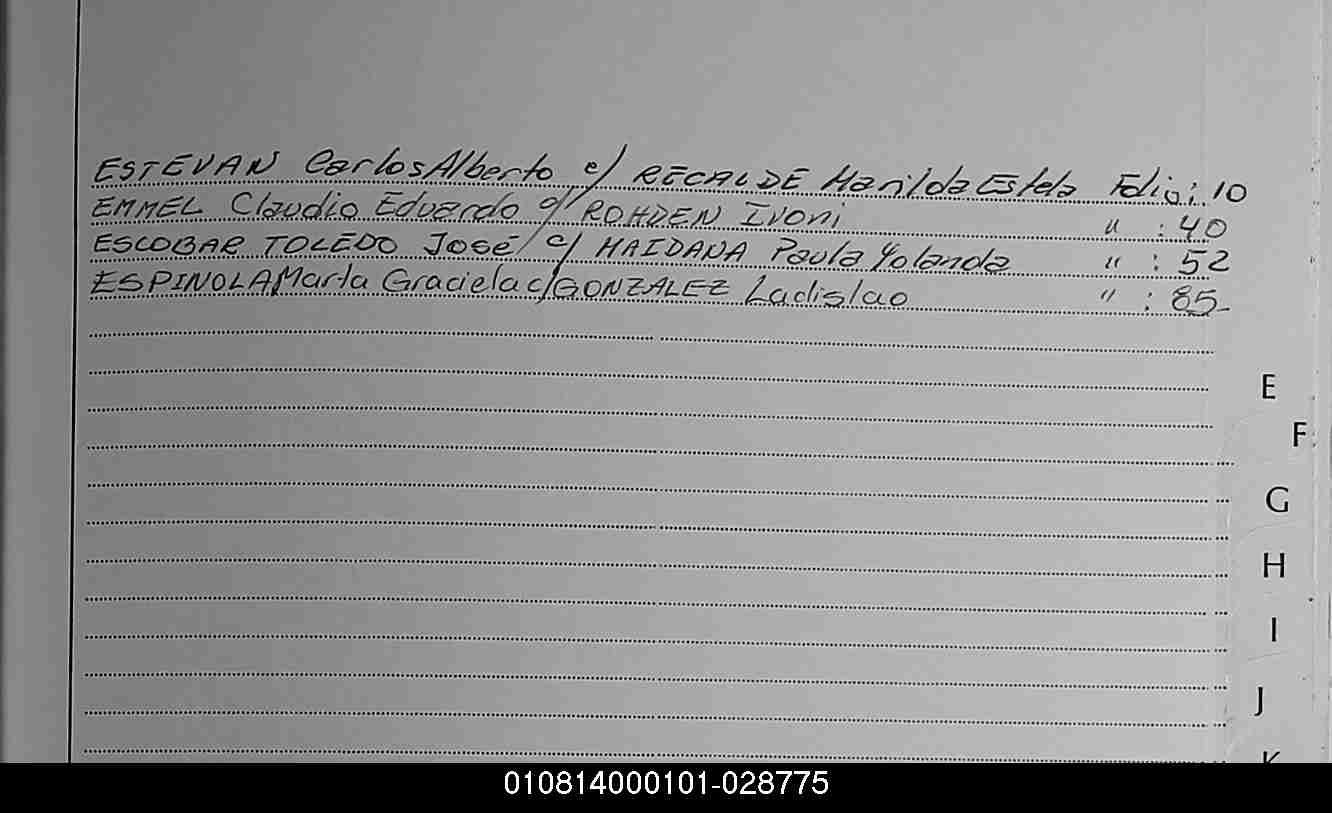 ESTEVAN Carlos Alberto c/ RECALDE Marilda Estela Folio: 10
EMMEL Claudio Eduardo c/ ROHDEN Ivoni " : 40
ESCOBAR TOLEDO José c/ MAIDANA Paula Yolanda " : 52
ESPINOLA Marta Graciela c/ GONZALEZ Ladislao " : 85-
E
F
G
H
I
J
K
010814000101-028775